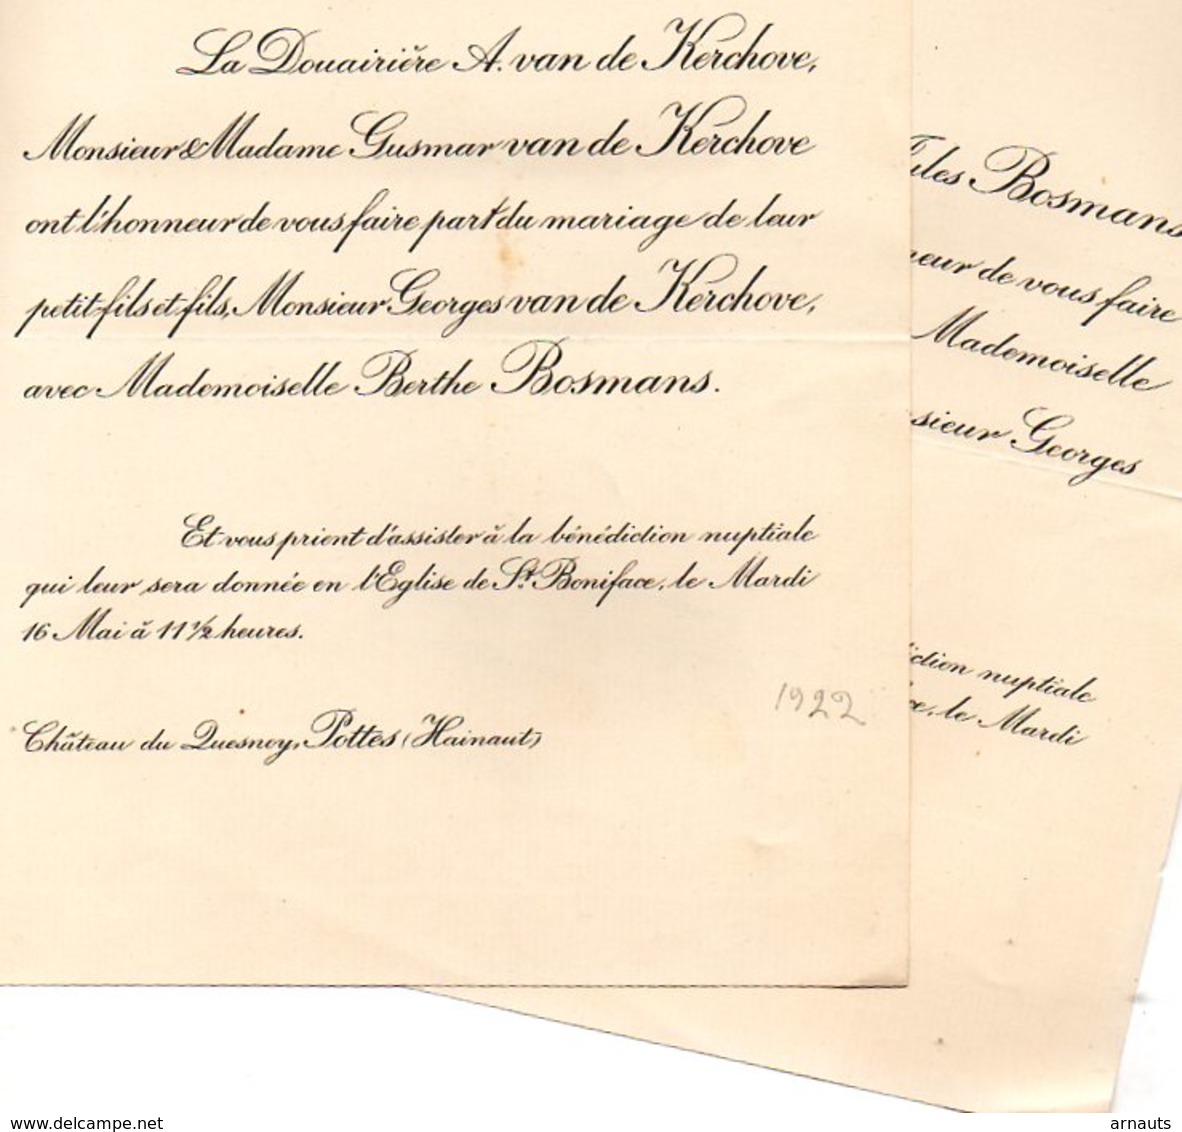 La Douairière A. van de Kerchove,
Monsieur & Madame Gusmar van de Kerchove
ont l'honneur de vous faire part du mariage de leur
petit-fils et fils, Monsieur Georges van de Kerchove,
avec Mademoiselle Berthe Bosmans.
Et vous prient d'assister à la bénédiction nuptiale
qui leur sera donnée en l'Eglise de St. Boniface, le Mardi
16 Mai à 11 ½ heures.
1922
Château du Quesnoy, Pottes (Hainaut)
Bosmans
de vous faire
Mademoiselle
sieur Georges
diction nuptiale
ce, le Mardi
www.delcampe.net
arnauts